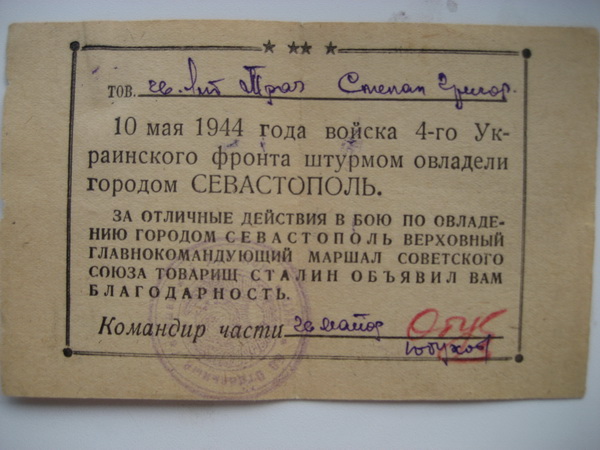 тов. гв. Лит Трач Степан Григор.
10 мая 1944 года войска 4-го Ук-
раинского фронта штурмом овладели
городом СЕВАСТОПОЛЬ.
ЗА ОТЛИЧНЫЕ ДЕЙСТВИЯ В БОЮ ПО ОВЛАДЕ-
НИЮ ГОРОДОМ СЕВАСТОПОЛЬ ВЕРХОВНЫЙ
ГЛАВНОКОМАНДУЮЩИЙ МАРШАЛ СОВЕТСКОГО
СОЮЗА ТОВАРИЩ СТАЛИН ОБЪЯВИЛ ВАМ
БЛАГОДАРНОСТЬ.
Командир части гв майор